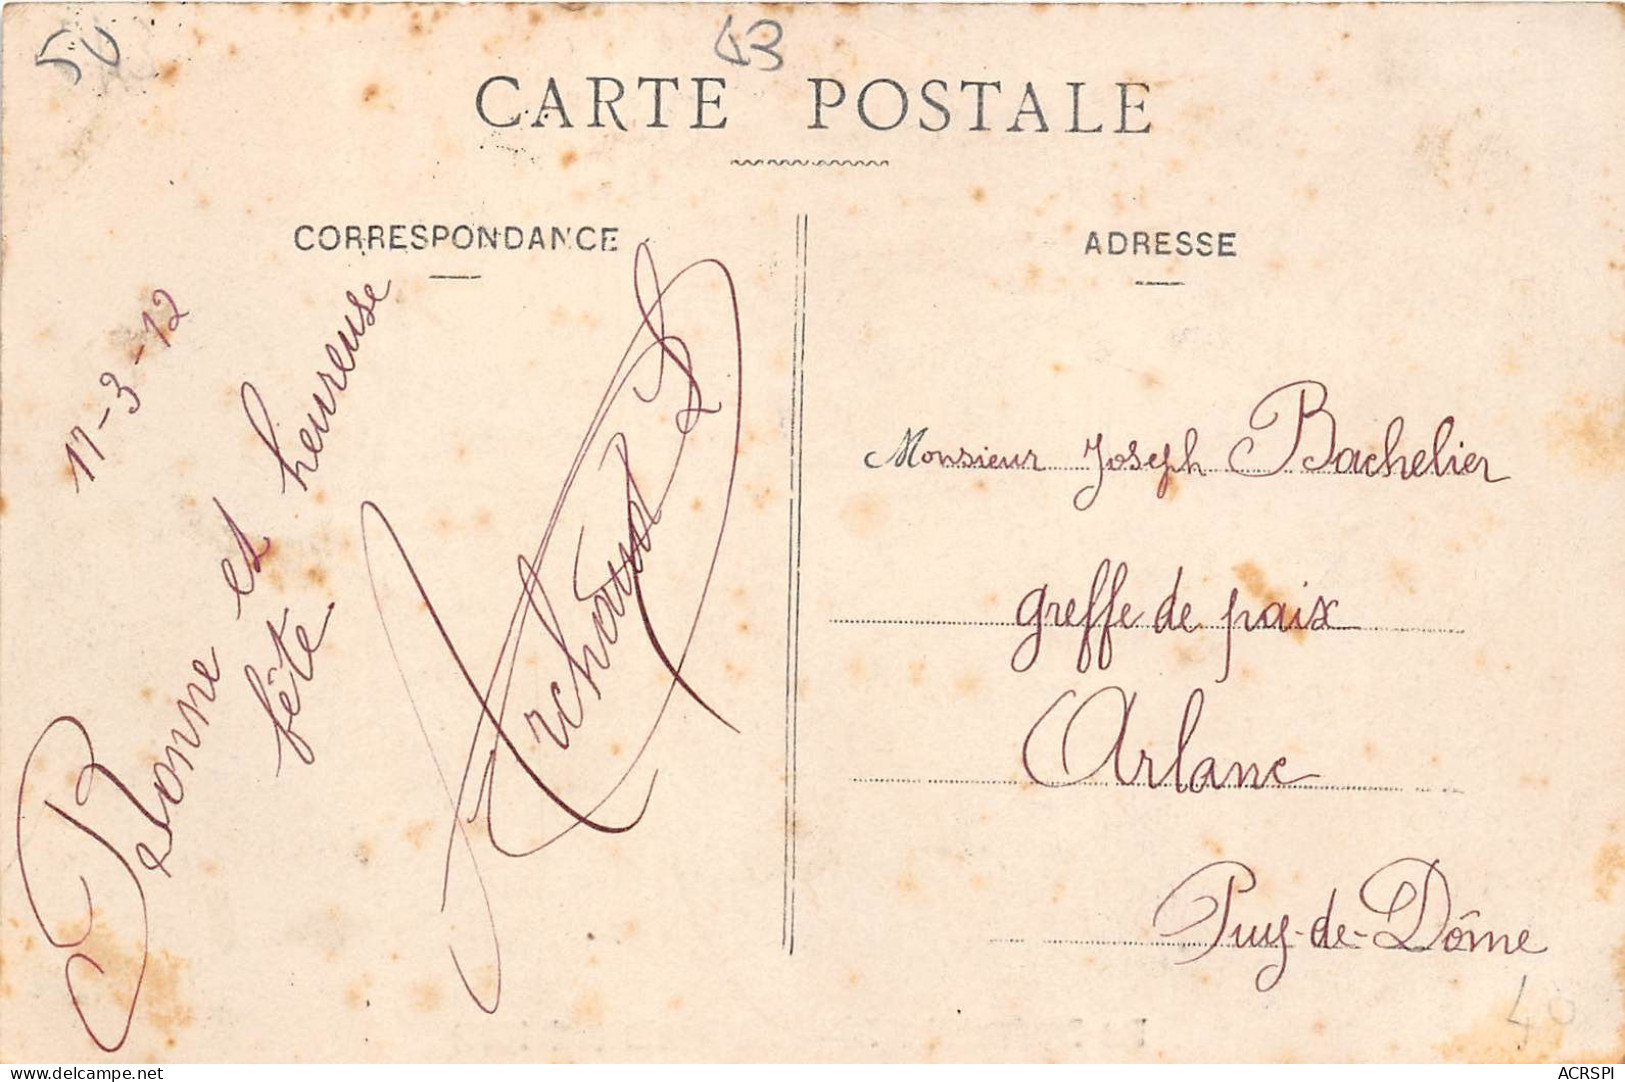 50
43
CARTE POSTALE
CORRESPONDANCE
17-3-12
Bonne et heureuse
fête
Archaud
ADRESSE
Monsieur Joseph Bachelier
greffe de paix
Arlanc
Puy-de-Dôme
40
www.delcampe.net
ACRSPI